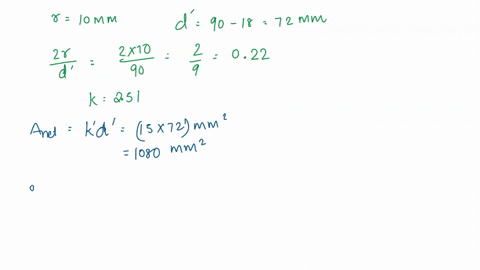 r = 10 mm    d' = 90 - 18 = 72 mm
2r/d' = 2×10/90 = 2/9 = 0.22
k = 251
Anet = k'd' = (15 × 72) mm²
= 1080 mm²